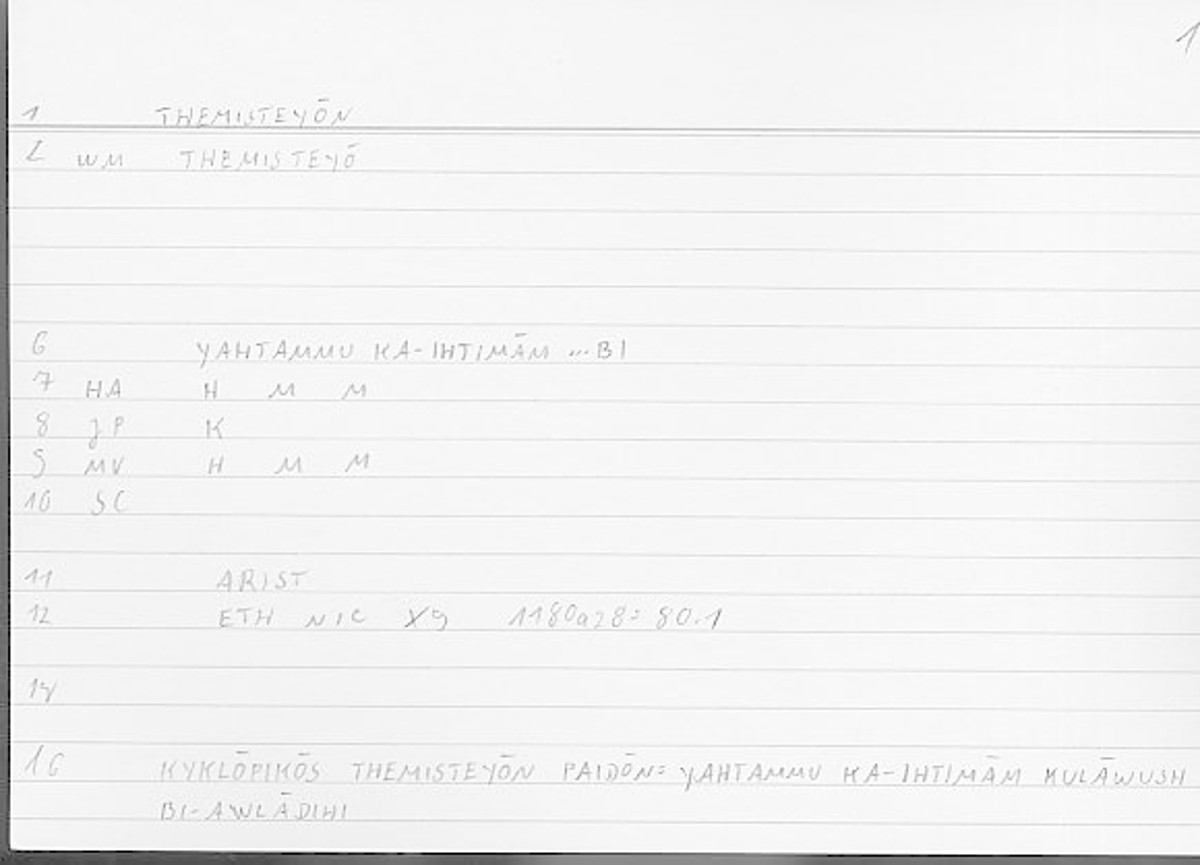 1
1 THEMISTEYŌN
2 WM THEMISTEYŌ
6 YAHTAMMU KA-IHTIMĀM ...BI
7 HA H M M
8 JP K
9 MV H M M
10 SC
11 ARIST
12 ETH NIC X9 1180a28= 80.1
14
16 KYKLŌPIKŌS THEMISTEYŌN PAIDŌN= YAHTAMMU KA-IHTIMĀM KULĀWUSH
BI-AWLĀDIHI